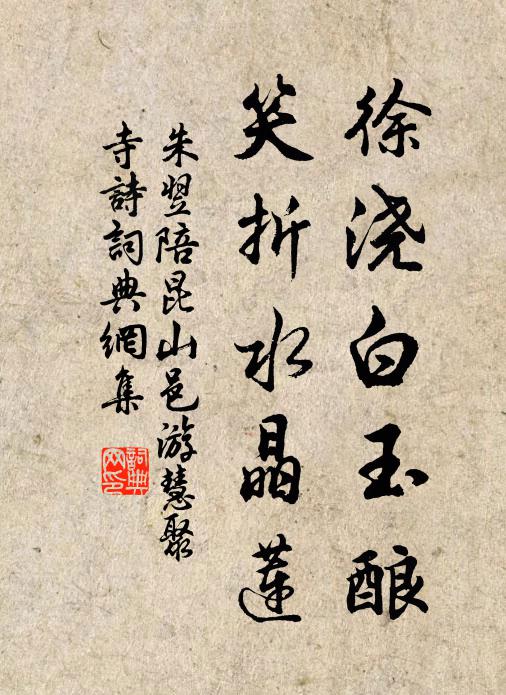 徐浇白玉酿
笑折水晶莲
朱翌陪昆山邑游慧聚
寺詩詞典網集
詞典
网印